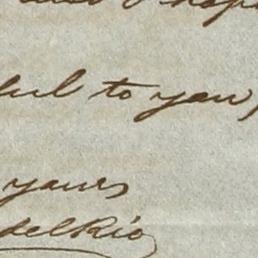 ful to you,
yours
delRio